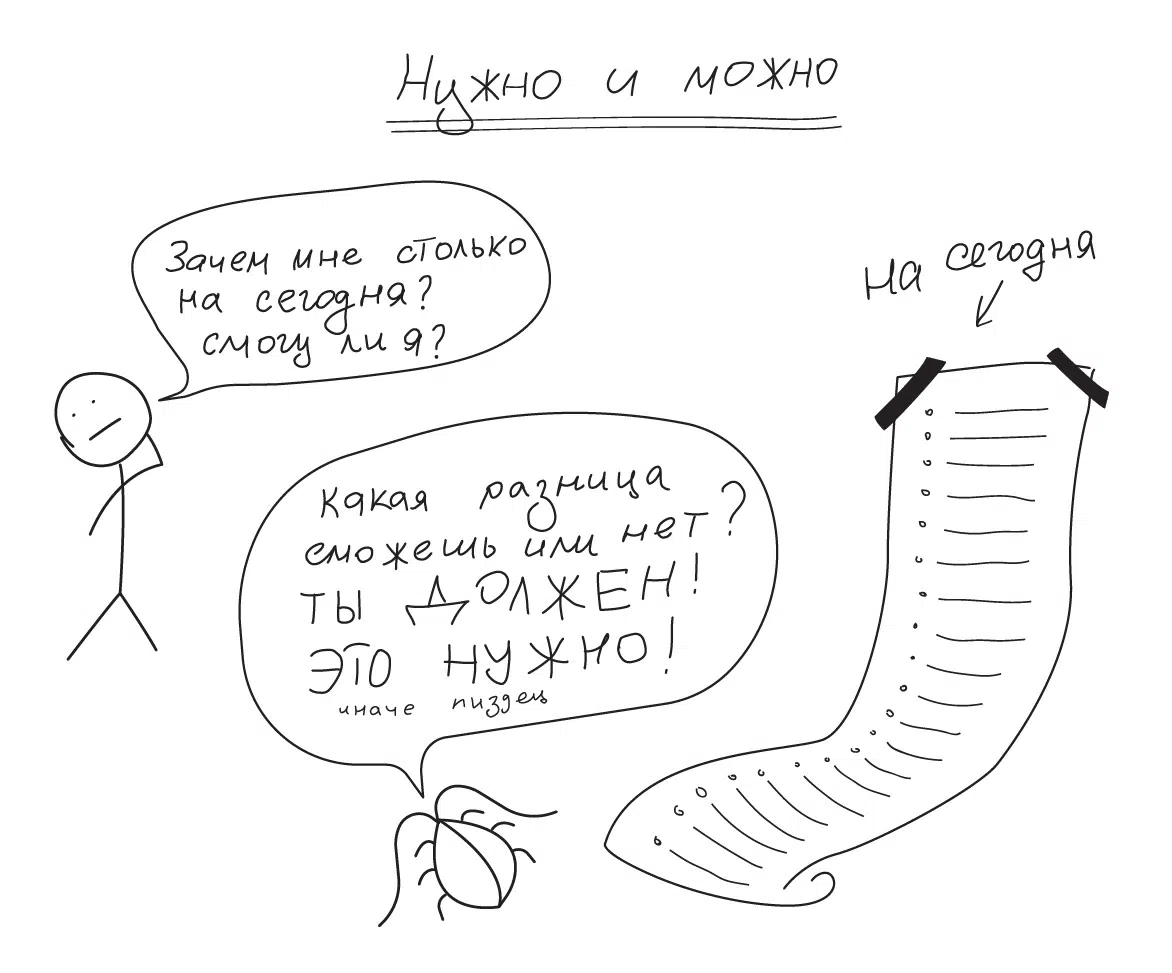 Нужно и можно
Зачем мне столько
на сегодня?
смогу ли я?
На сегодня
Какая разница
сможешь или нет?
ТЫ ДОЛЖЕН!
ЭТО НУЖНО!
иначе пиздец